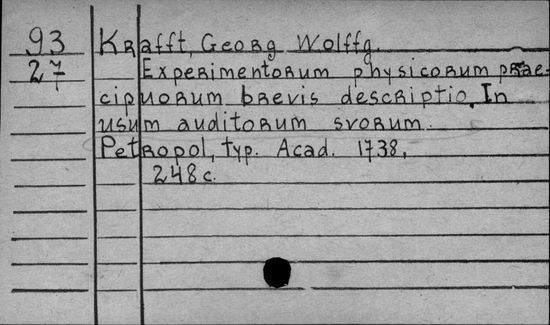 93 Krafft, Georg Wolffg.
27 Experimentorum physicorum prae-
cipuorum brevis descriptio. In
usum auditorum svorum.
Petropol, typ. Acad. 1738,
248 c.